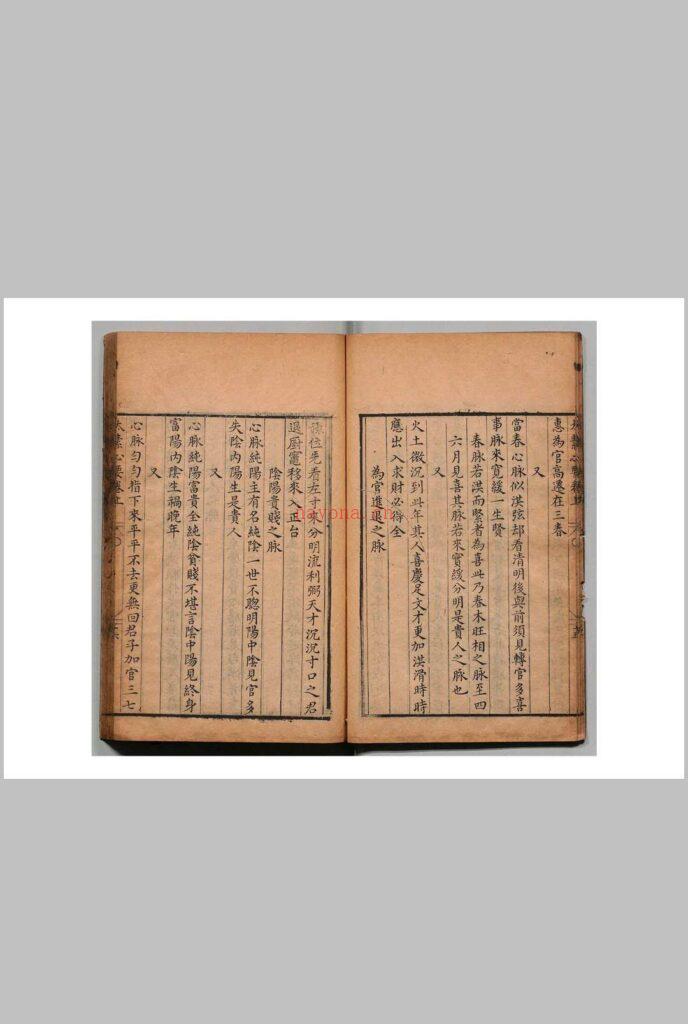 惠為官高遷在三春
又
當春心脉似洪弦却看清明後與前須見轉官多喜
事脉來寛緩一生賢
春脉若洪而緊者為喜此乃春木旺相之脉至四
六月見喜其脉若來實緩分明是貴人之脉也
又
火土微沉到此年其人喜慶足文才更加洪滑時時
應出入求財必得全
為官進退之脉
位先看左寸來分明流利弼天才沉沉寸口之君
退厨竈移來入正台
陰陽貴賤之脉
心脉純陽主有名純陰一世不聰明陽中陰見官多
失陰内陽生是貴人
又
心脉純陽富貴全純陰貧賤不堪言陰中陽見終身
富陽内陰生禍晚年
又
心脉匀匀指下來平平不去更無回君子加官三七
太素心要卷上
nayona.cn